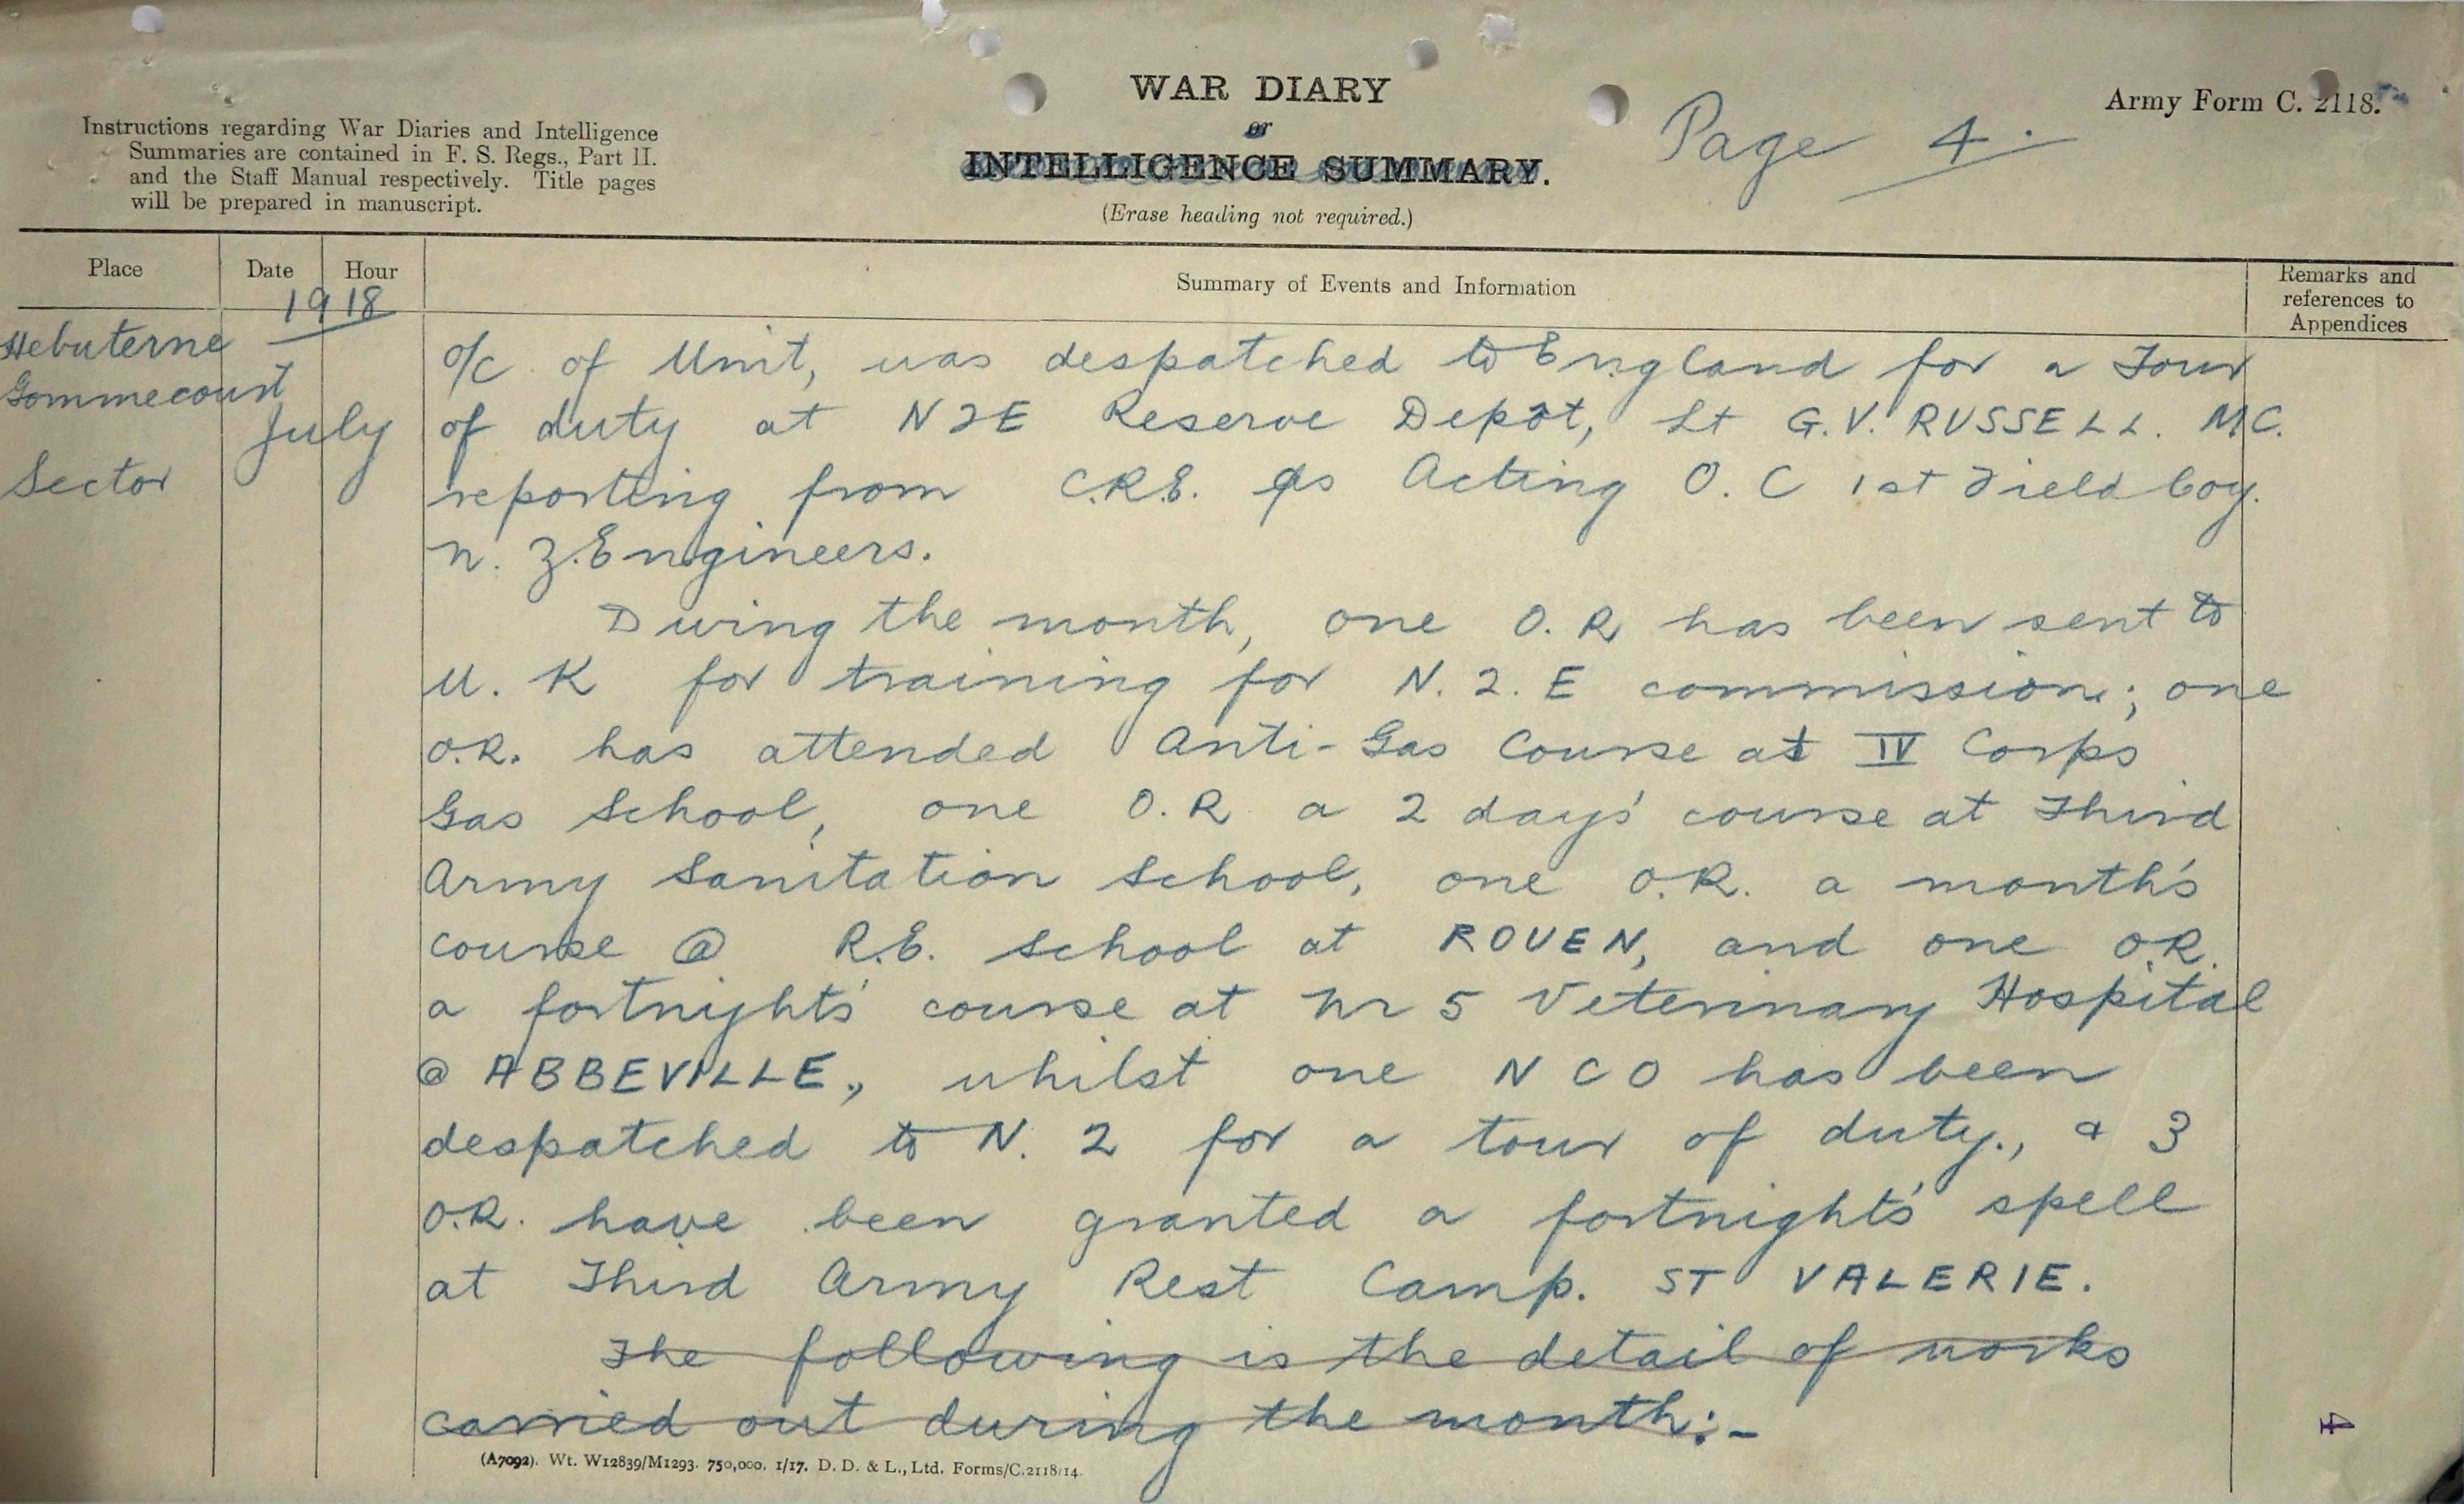 WAR DIARY
or
INTELLIGENCE SUMMARY.
(Erase heading not required.)
Instructions regarding War Diaries and Intelligence
Summaries are contained in F. S. Regs., Part II.
and the Staff Manual respectively. Title pages
will be prepared in manuscript.
Page 4.
Army Form C. 2118.
Place
Date
Hour
1918
Summary of Events and Information
Remarks and
references to
Appendices
Hebuterne
Gommecourt
July
Sector
o/c of Unit, was despatched to England for a Tour
of duty at NZE Reserve Depôt, Lt G.V. RUSSELL. MC.
reporting from C.R.E. as Acting O.C 1st Field Coy.
N. Z. Engineers.
During the month, one O.R has been sent to
U. K for training for N. Z. E commission; one
O.R. has attended Anti-Gas Course at IV Corps
Gas School, one O.R a 2 days' course at Third
Army Sanitation School, one O.R. a month's
course @ R.E. School at ROUEN, and one O.R.
a fortnights' course at Nr 5 Veterinary Hospital
@ ABBEVILLE., whilst one NCO has been
despatched to N. Z for a tour of duty., & 3
O.R. have been granted a fortnights' spell
at Third Army Rest Camp. ST VALERIE.
The following is the detail of works
carried out during the month:-
(A7092). Wt. W12839/M1293. 750,000. 1/17. D. D. & L., Ltd. Forms/C.2118/14.
4